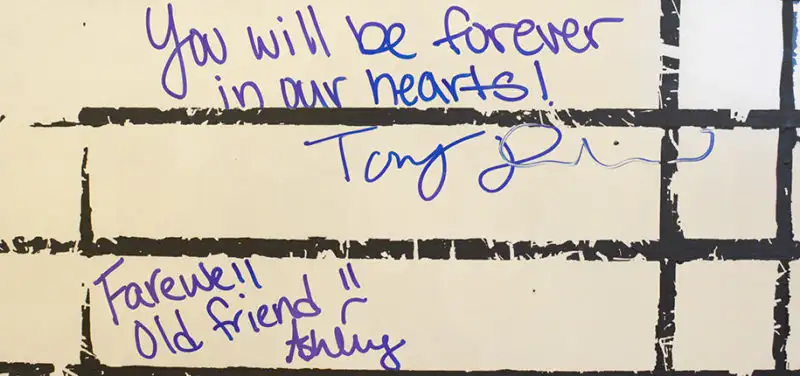 You will be forever
in our hearts!
Tony
Farewell
Old friend "
~ Ashley